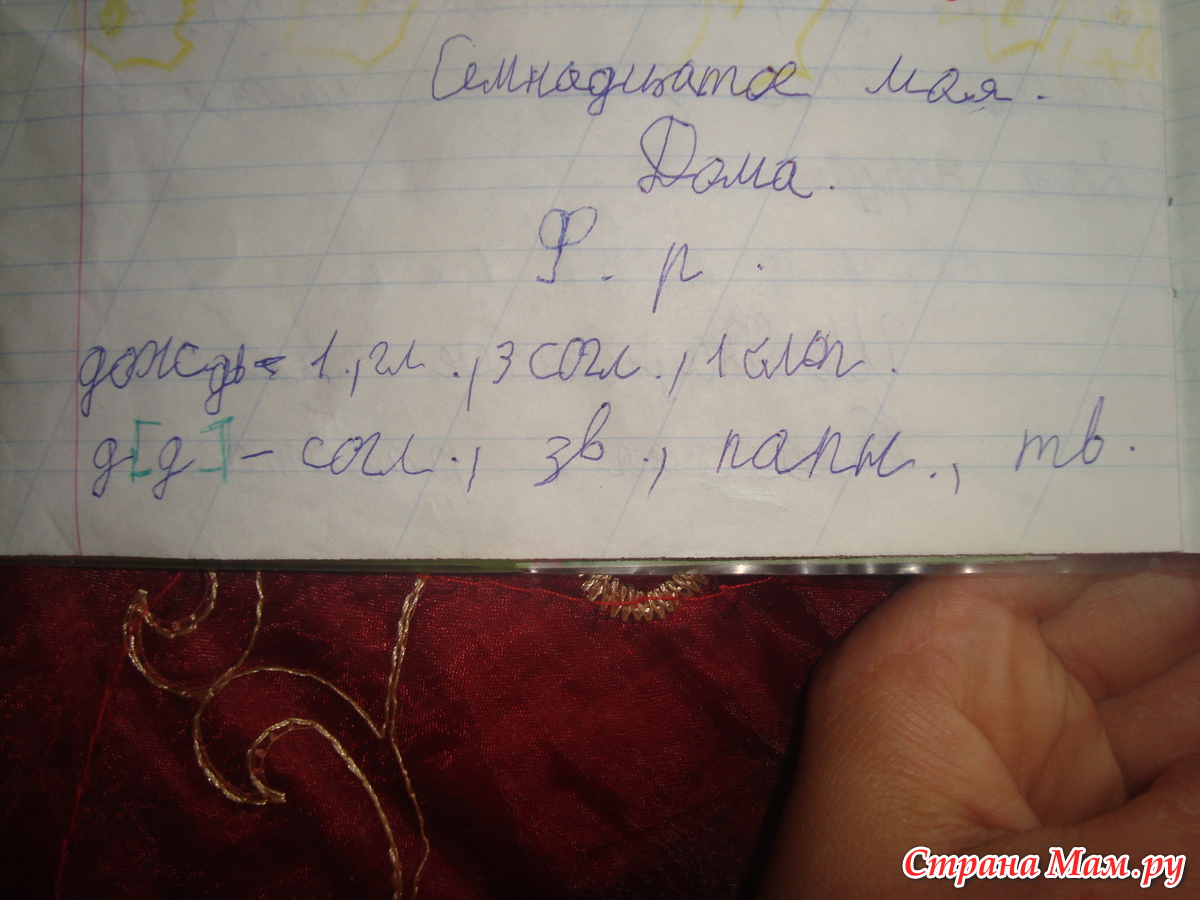 Семнадцатое мая.
Дома.
Ф. р.
дождь - 1, гл., 3 согл., 1 слог.
д [д] - согл., зв., парн., тв.
Страна Мам.ру